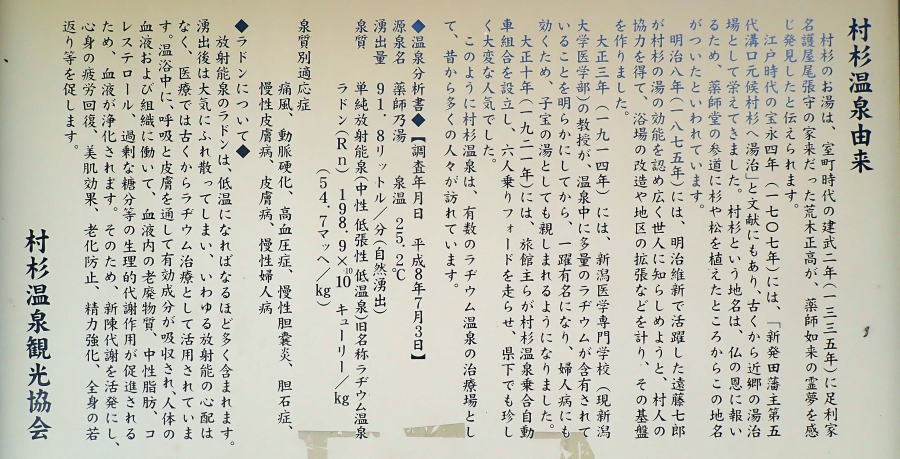 村杉温泉由来
村杉のお湯は、室町時代の建武二年(一三三五年)に足利家
名護屋尾張守の家来だった荒木正高が、薬師如来の霊夢を感
じ発見したと伝えられます。
江戸時代の宝永四年(一七〇七年)には、「新発田藩主第五
代溝口元候村杉へ湯治」と文献にもあり、古くから近郷の湯治
場として栄えてきました。村杉という地名は、仏の恩に報い
るため、薬師堂の参道に杉や松を植えたところからこの地名
がついたといわれています。
明治八年(一八七五年)には、明治維新で活躍した遠藤七郎
が村杉の湯の効能を認め広く世人に知らしめようと、村人の
協力を得て、浴場の改造や地区の拡張などを計り、その基盤
を作りました。
大正三年(一九一四年)には、新潟医学専門学校(現新潟
大学医学部)の教授が、温泉中に多量のラヂウムが含有されて
いることを明らかにしてから、一躍有名になり、婦人病にも
効くため、子宝の湯としても親しまれるようになりました。
大正十年(一九二一年)には、旅館主らが村杉温泉乗合自動
車組合を設立し、六人乗りフォードを走らせ、県下でも珍し
く大変な人気でした。
このように村杉温泉は、有数のラヂウム温泉の治療場とし
て、昔から多くの人々が訪れています。
◆温泉分析書◆【調査年月日 平成8年7月3日】
源泉名 薬師乃湯 泉温 25.2℃
湧出量 91.8リットル/分(自然湧出)
泉質 単純放射能泉(中性低張性低温泉)旧名称ラヂウム温泉
ラドン(Rn) 198.9×10⁻¹⁰ キューリー/kg
(54.7マッヘ/kg)
泉質別適応症
痛風、動脈硬化、高血圧症、慢性胆嚢炎、胆石症、
慢性皮膚病、皮膚病、慢性婦人病
◆ラドンについて◆
放射能泉のラドンは、低温になればなるほど多く含まれます。
湧出後は大気にふれ散ってしまい、いわゆる放射能の心配は
なく、医療では古くからラヂウム治療として活用されていま
す。温浴中に、呼吸と皮膚を通して有効成分が吸収され、人体の
血液および組織に働いて、血液内の老廃物質、中性脂肪、コ
レステロール、過剰な糖分等の生理的代謝作用が促進される
ため、血液が浄化されます。そのため、新陳代謝を活発にし、
心身の疲労回復、美肌効果、老化防止、精力強化、全身の若
返り等を促します。
村杉温泉観光協会